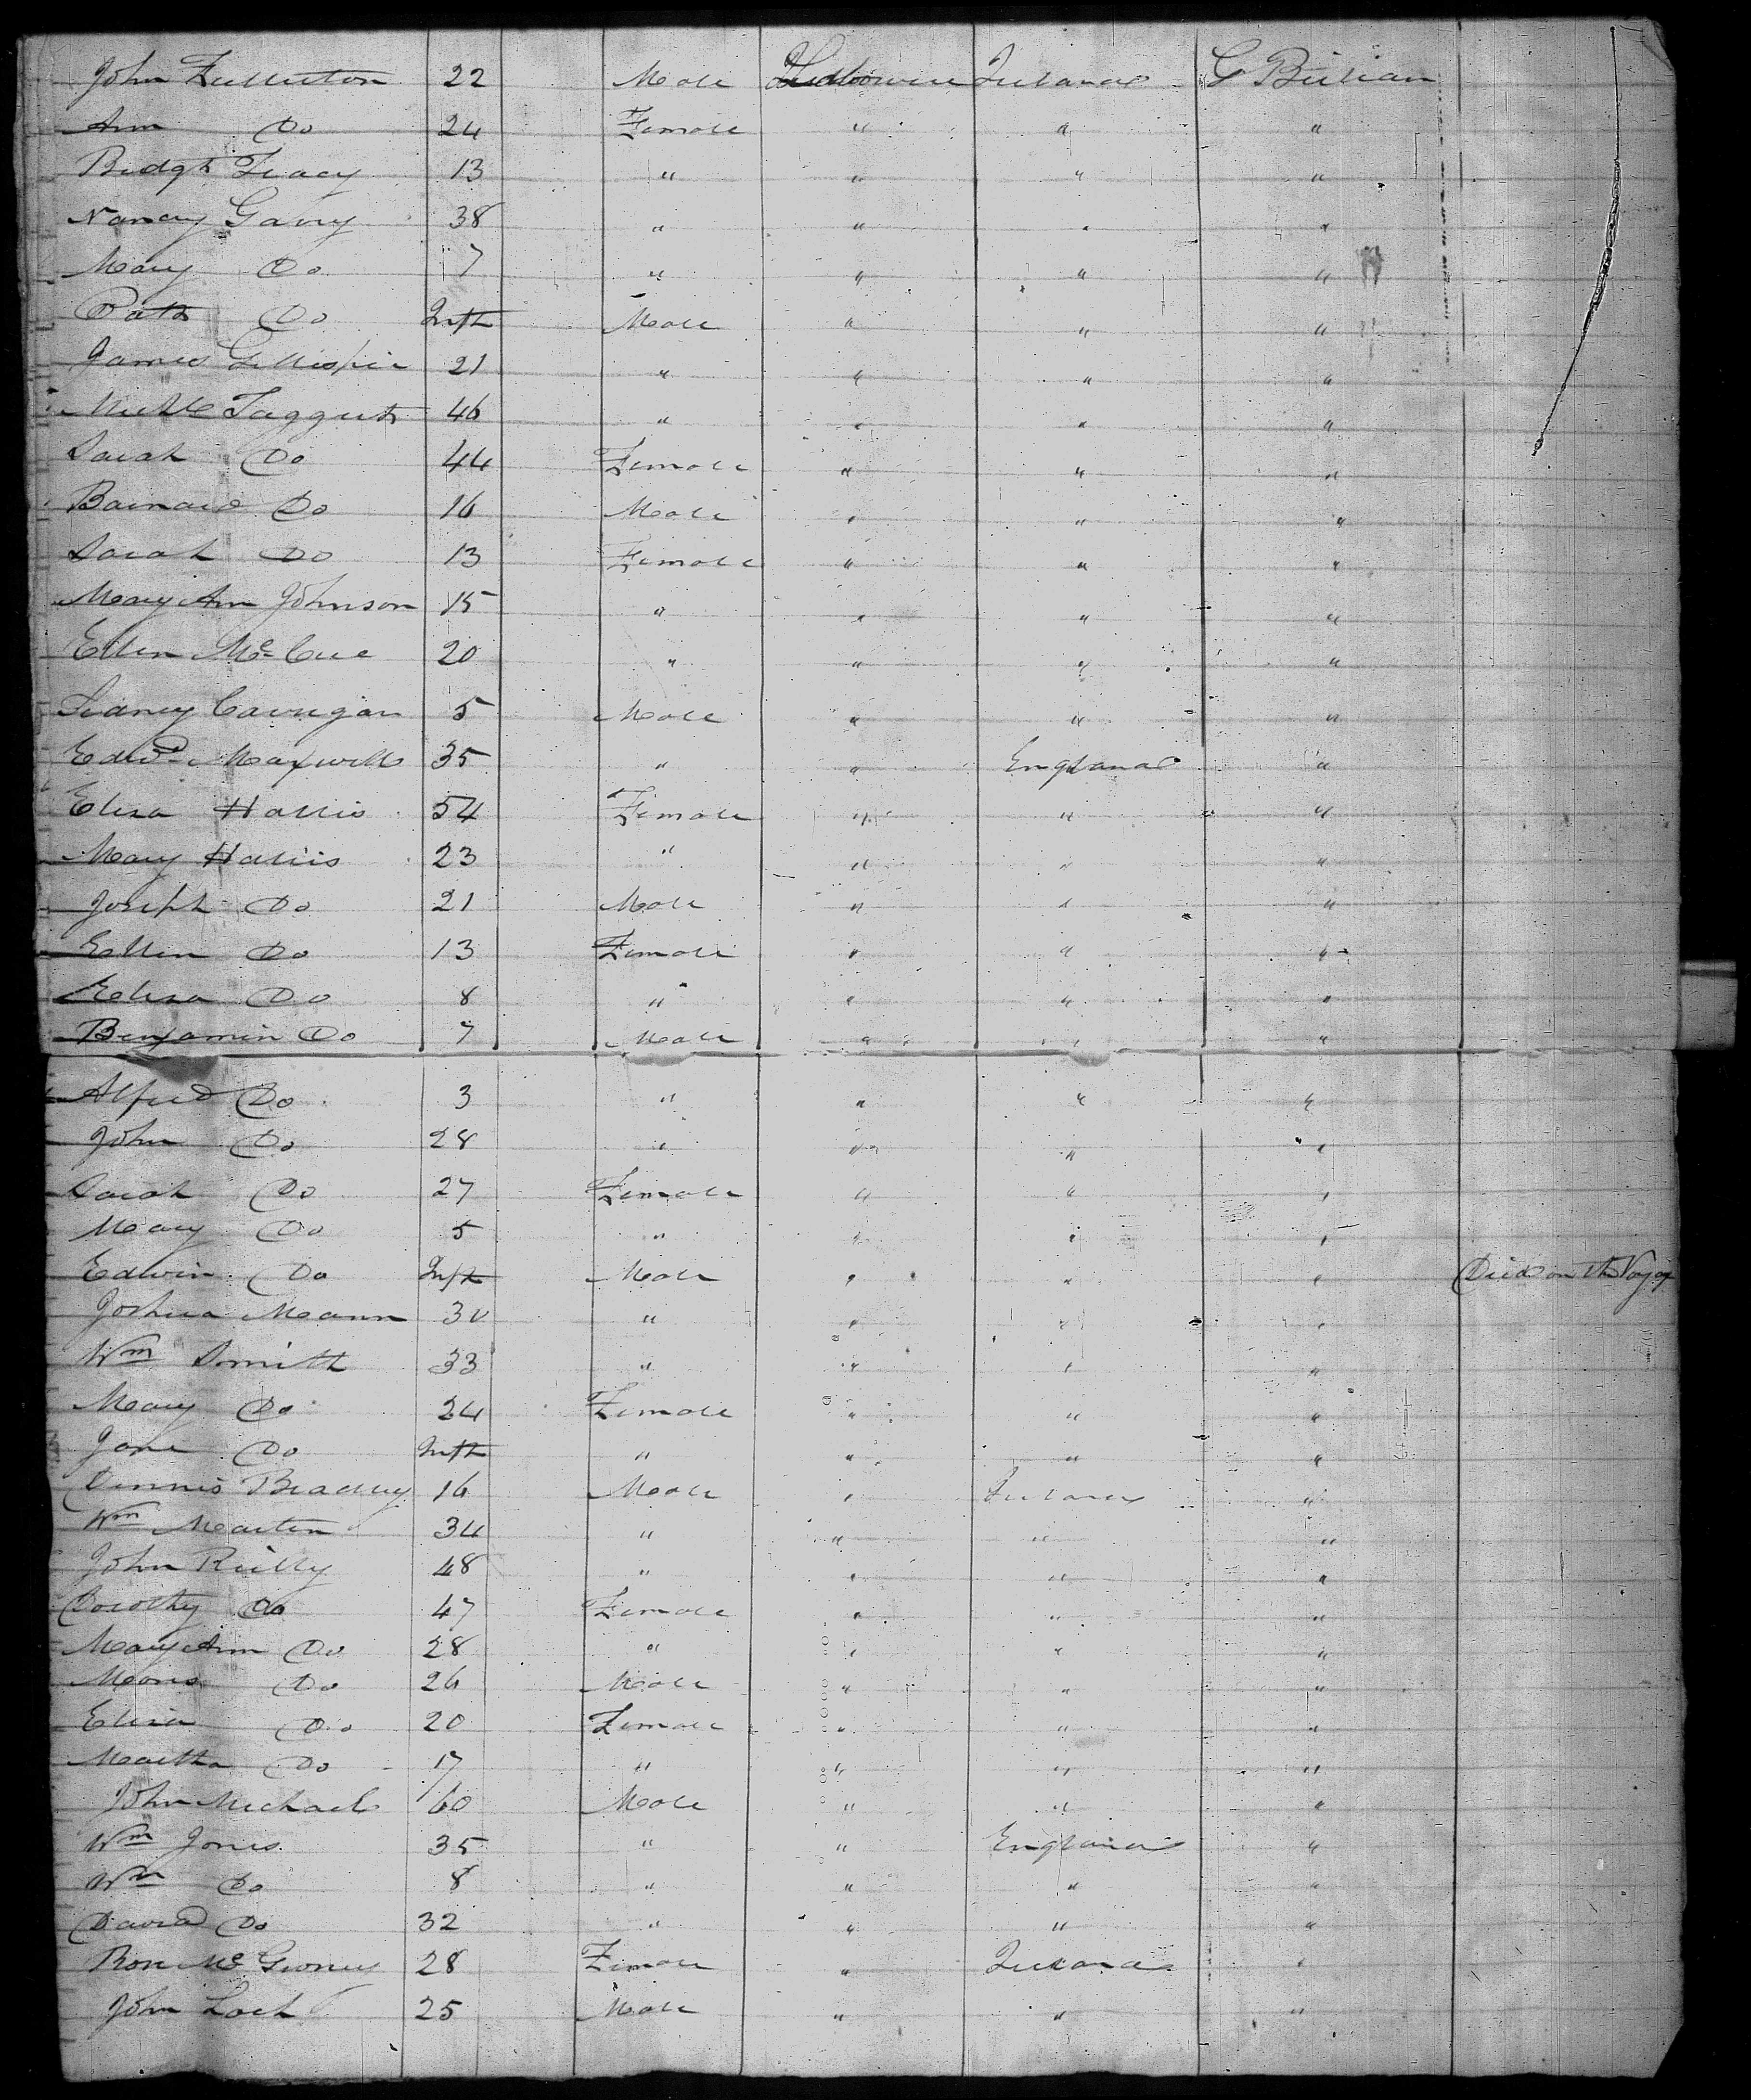 John Fullerton 22 Male Ireland G Britian
Ann Do 24 Female " " "
Bridgt Tracy 13 " " " "
Nancy Garry 38 " " " "
Mary Do 7 " " " "
Patk Do Inft Male " " "
James Gillispie 21 " " " "
Michl Taggert 46 " " " "
Sarah Do 44 Female " " "
Barnard Do 16 Male " " "
Sarah Do 13 Female " " "
Mary Ann Johnson 15 " " " "
Ellen Mc Cue 20 " " " "
Sidney Cavrigan 5 Male " " "
Edwd Maxwell 35 " " England "
Elisa Harris 54 Female " " "
Mary Harris 23 " " " "
Joseph Do 21 Male " " "
Ellen Do 13 Female " " "
Elisa Do 8 " " " "
Benjamin Do 7 Male " " "
Alfred Do 3 " " " "
John Do 28 " " " "
Sarah Do 27 Female " " "
Mary Do 5 " " " "
Edwin Do Inft Male " " " Died on the Voyag
Joshua Mann 30 " " " "
Wm Smith 33 " " " "
Mary Do 24 Female " " "
Jane Do Inft " " " "
Dennis Bradley 16 Male " Ireland "
Wm Martin 34 " " " "
John Reilly 48 " " " "
Dorothy Do 47 Female " " "
Mary Ann Do 28 " " " "
Morris Do 26 Male " " "
Elisa Do 20 Female " " "
Martha Do 17 " " " "
John Michael 60 Male " " "
Wm Jones 35 " " England "
Wm Do 8 " " " "
David Do 32 " " " "
Rose Mc 28 Female " Ireland "
John Lock 25 Male " " "